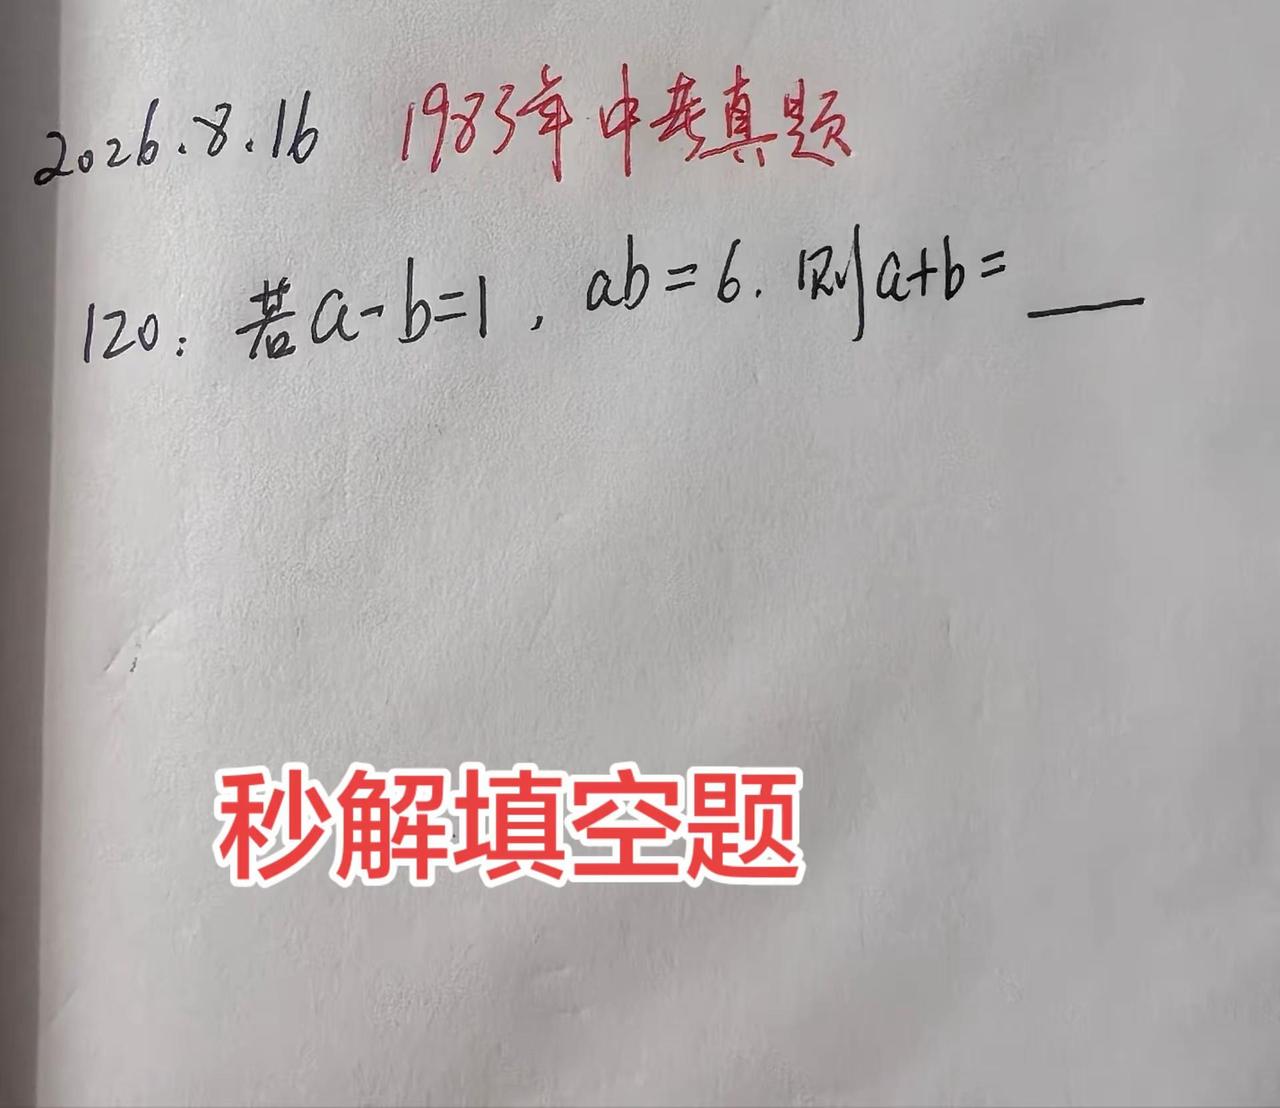 2026.8.16 1983年中考真题
120: 若a-b=1, ab=6. 则a+b=___
秒解填空题